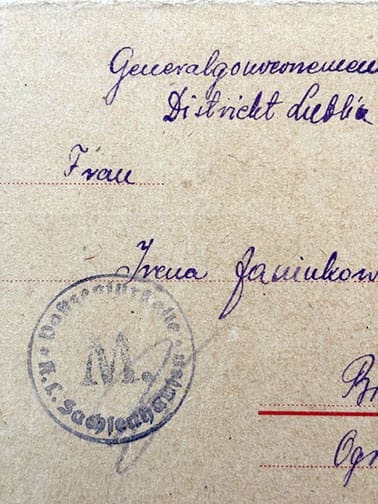 Generalgouvernemen
Districkt Lublin
Frau
Irena
Postzensurstelle
M.
K.L. Sachsenhausen
Ogr